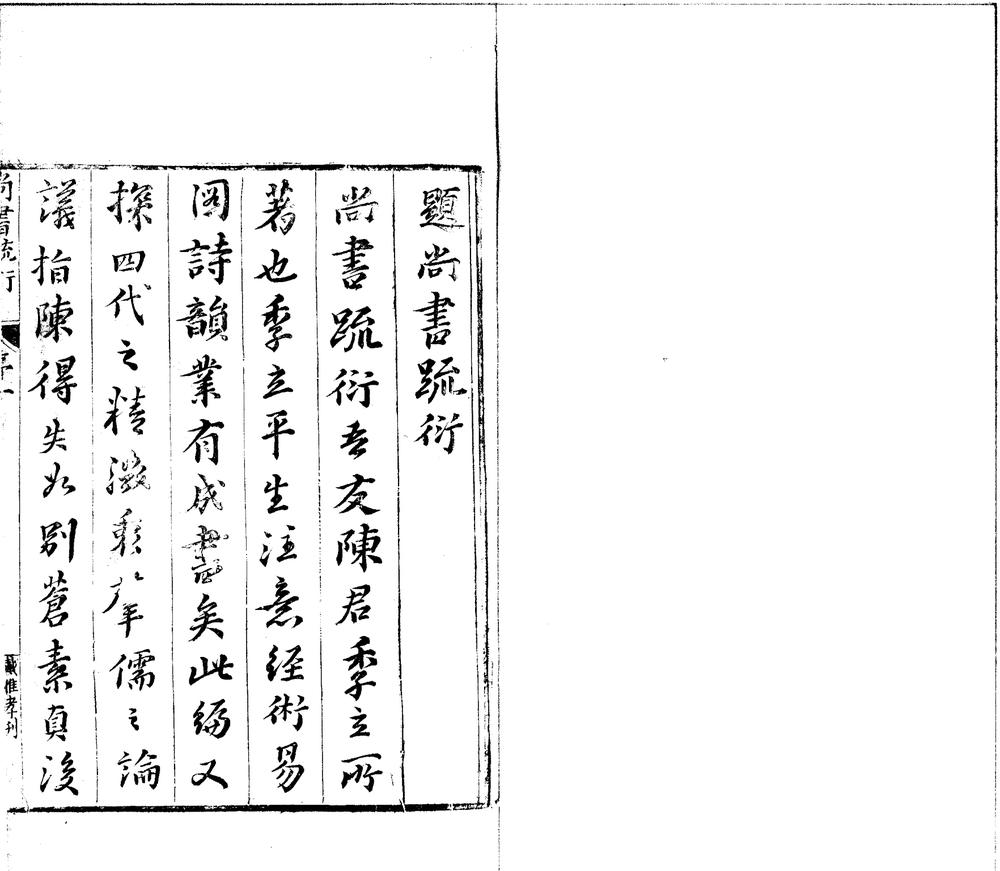 題尚書疏衍
尚書疏衍吾友陳君季立所
著也季立平生注意經術易
圖詩韻業有成書矣此編又
探四代之精微儒之論
議指陳得失如別蒼素真後
尚書疏衍
序一
戴惟孝刊